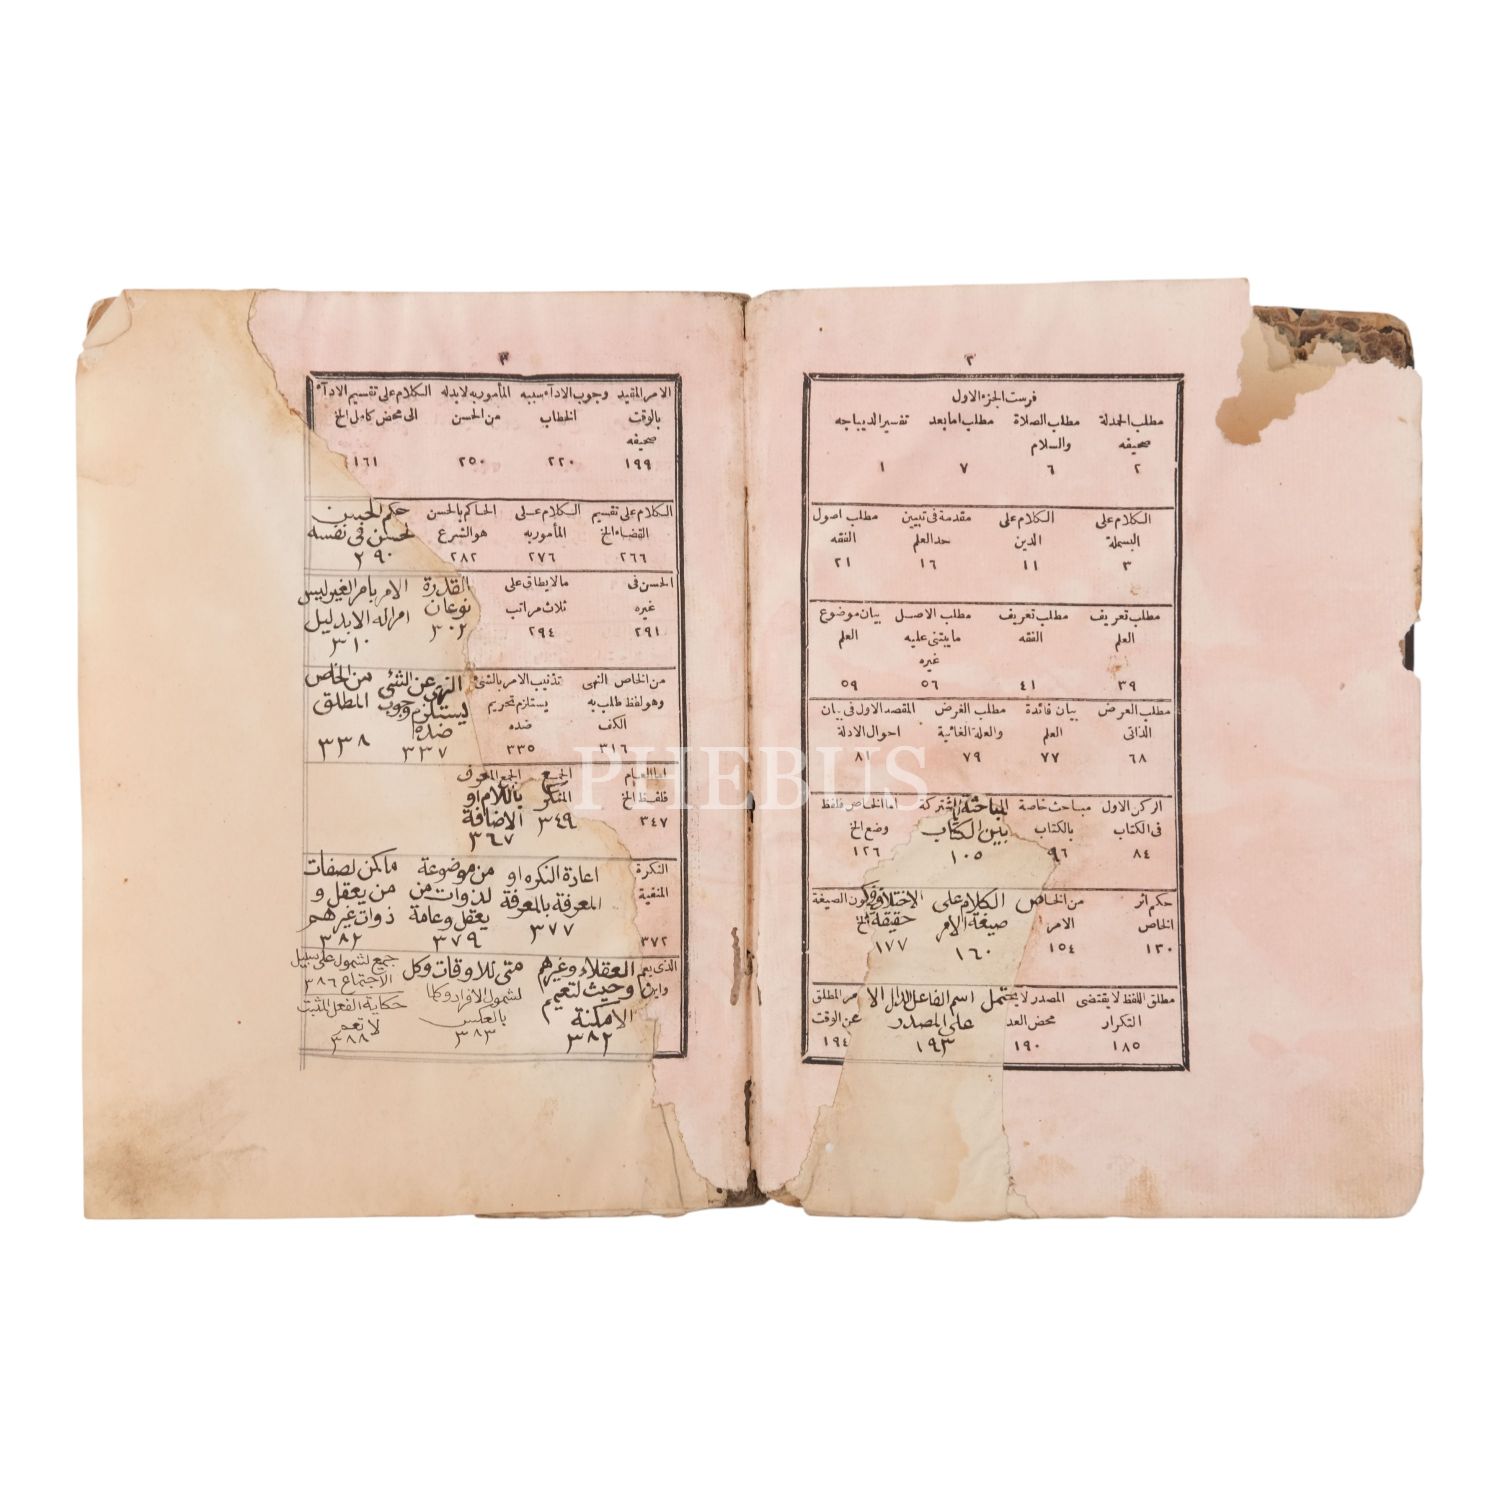 ٢
فرست الجزء الاول
مطلب الحمدلة مطلب الصلاة مطلب اما بعد تفسير الديباجه
صحيفه والسلام
٢ ٦ ٧ ١
الكلام على الكلام على مقدمة فى تبيين مطلب اصول
البسملة الدين حد العلم الفقه
٣ ١١ ١٦ ٢١
مطلب تعريف مطلب تعريف مطلب الاصل بيان موضوع
العلم الفقه ما يبتنى عليه العلم
غيره
٣٩ ٤١ ٥٦ ٥٩
مطلب العرض بيان فائدة مطلب الغرض المقصد الاول فى بيان
الذاتى العلم والعلة الغائية احوال الادلة
٦٨ ٧٧ ٧٩ ٨١
الركن الاول مباحث خاصة المباحثة المشتركة اما الخاص فلفظ
فى الكتاب بالكتاب بين الكتاب وضع الخ
٨٤ ٩٦ ١٠٥ ١٢٦
حكم اثر من الخاص الكلام على الاختلاف فى كون الصيغة
الخاص الامر صيغة الامر حقيقة الخ
١٣٠ ١٥٤ ١٦٠ ١٧٧
مطلق اللفظ لا يقتضى المصدر لا يحتمل اسم الفاعل الدال الامر المطلق
التكرار محض العدد على المصدر عن الوقت
١٨٥ ١٩٠ ١٩٣ ١٩٤
٣
الامر المقيد وجوب الاداء سببه المأمور به لا بد له الكلام على تقسيم الاداء
بالوقت الخطاب من الحسن الى محض كامل الخ
صحيفه
١٩٩ ٢٢٠ ٢٥٠ ١٦١
الكلام على تقسيم الكلام على الحاكم بالحسن حكم الحسن
القضاء الخ المأمور به هو الشرع لحسن فى نفسه
٢٦٦ ٢٧٦ ٢٨٢ ٢٩٠
الحسن فى ما لا يطاق على القدرة الامر بامر الغير ليس
غيره ثلاث مراتب نوعان امرا له الا بدليل
٢٩١ ٢٩٤ ٣٠٢ ٣١٠
من الخاص النهى تذنيب الامر بالشئ النهى عن الشئ من الخاص
وهو لفظ طلب به يستلزم تحريم يستلزم وجوب المطلق
الكف ضده ضده
٣١٦ ٣٣٥ ٣٣٧ ٣٣٨
اما العام الجمع الجمع المعرف
فلفظ الخ المنكر باللام او
الاضافة
٣٤٧ ٣٤٩ ٣٦٧
النكرة اعادة النكره او من موضوعة ما كمن لصفات
المنفية المعرفة بالمعرفة لذوات من من يعقل و
يعقل وعامة ذوات غيرهم
٣٧٢ ٣٧٧ ٣٧٩ ٣٨٢
الذى يعم العقلاء وغيرهم متى للاوقات وكل جميع لشمول على سبيل
واين وحيث لتعميم لشمول الافراد وكلما الاجتماع ٣٨٦
الامكنة بالعكس حكاية الفعل المثبت
٣٨٢ ٣٨٣ لا تعم
٣٨٨
PHEBUS